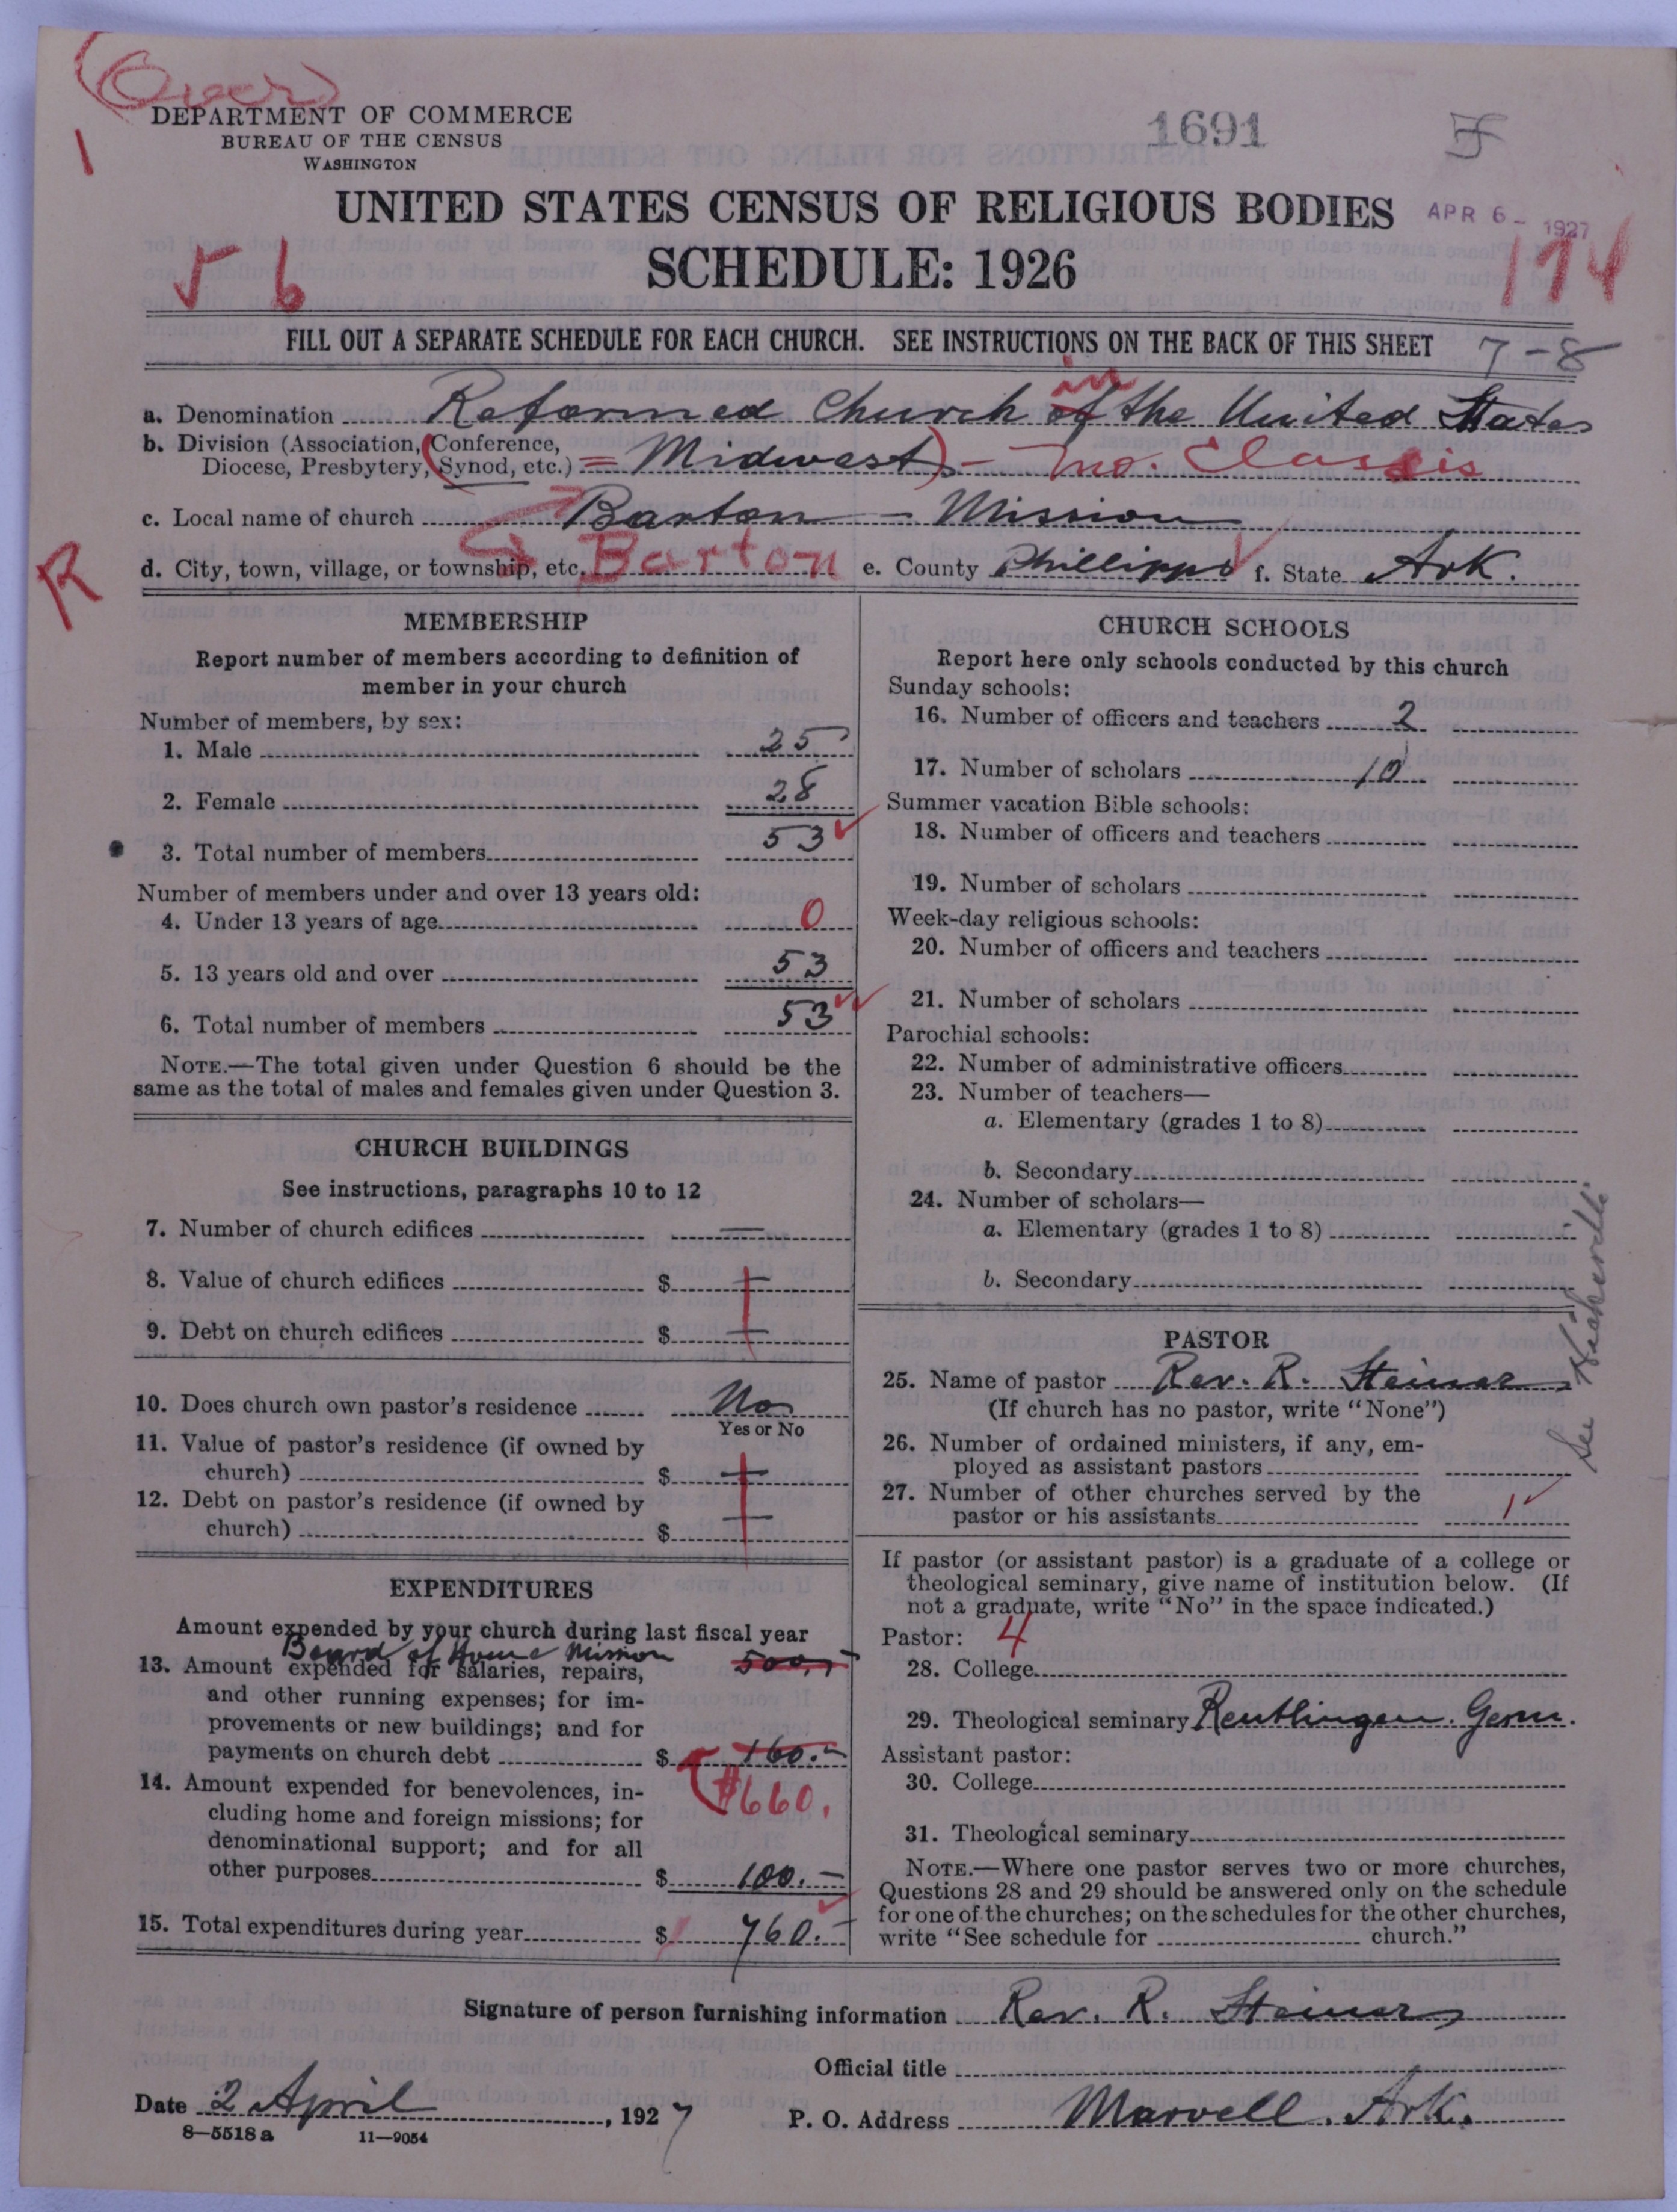 (Over)
DEPARTMENT OF COMMERCE
BUREAU OF THE CENSUS
WASHINGTON
1691
UNITED STATES CENSUS OF RELIGIOUS BODIES
APR 6 - 1927
SCHEDULE: 1926
56
174
FILL OUT A SEPARATE SCHEDULE FOR EACH CHURCH. SEE INSTRUCTIONS ON THE BACK OF THIS SHEET
7-8
in
a. Denomination Reformed Church of the United States
b. Division (Association, Conference,
Diocese, Presbytery, Synod, etc.) = Midwest) - Mo. Classis
c. Local name of church Barton - Mission
R
d. City, town, village, or township, etc. Barton e. County Phillipps f. State Ark.
MEMBERSHIP
Report number of members according to definition of
member in your church
Number of members, by sex:
1. Male 25
2. Female 28
3. Total number of members 53
Number of members under and over 13 years old:
4. Under 13 years of age 0
5. 13 years old and over 53
6. Total number of members 53
NOTE.—The total given under Question 6 should be the
same as the total of males and females given under Question 3.
CHURCH BUILDINGS
See instructions, paragraphs 10 to 12
7. Number of church edifices —
8. Value of church edifices $ —
9. Debt on church edifices $ —
10. Does church own pastor's residence No
Yes or No
11. Value of pastor's residence (if owned by
church) $ —
12. Debt on pastor's residence (if owned by
church) $ —
EXPENDITURES
Amount expended by your church during last fiscal year
Board of Home Mission 500.-
13. Amount expended for salaries, repairs,
and other running expenses; for im-
provements or new buildings; and for
payments on church debt $ 160.-
$660.
14. Amount expended for benevolences, in-
cluding home and foreign missions; for
denominational support; and for all
other purposes $ 100.-
15. Total expenditures during year $ 760.-
CHURCH SCHOOLS
Report here only schools conducted by this church
Sunday schools:
16. Number of officers and teachers 2
17. Number of scholars 10
Summer vacation Bible schools:
18. Number of officers and teachers
19. Number of scholars
Week-day religious schools:
20. Number of officers and teachers
21. Number of scholars
Parochial schools:
22. Number of administrative officers
23. Number of teachers—
a. Elementary (grades 1 to 8)
b. Secondary
24. Number of scholars—
a. Elementary (grades 1 to 8)
b. Secondary
PASTOR
25. Name of pastor Rev. R. Steiner
(If church has no pastor, write "None")
26. Number of ordained ministers, if any, em-
ployed as assistant pastors
27. Number of other churches served by the
pastor or his assistants 1
See
If pastor (or assistant pastor) is a graduate of a college or
theological seminary, give name of institution below. (If
not a graduate, write "No" in the space indicated.)
Pastor: 4
28. College
29. Theological seminary Reutlingen. Germ.
Assistant pastor:
30. College
31. Theological seminary
NOTE.—Where one pastor serves two or more churches,
Questions 28 and 29 should be answered only on the schedule
for one of the churches; on the schedules for the other churches,
write "See schedule for church."
Signature of person furnishing information Rev. R. Steiner
Official title
Date 2 April, 1927
P. O. Address Marvell. Ark.
8—5518a 11—9054